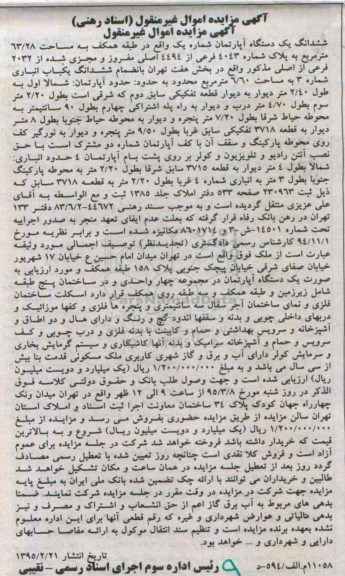 آگهی مزایده اموال غیرمنقول (اسناد رهنی)
آگهی مزایده اموال غیرمنقول
ششدانگ یک دستگاه آپارتمان شماره یک واقع در طبقه همکف به مساحت ۶۳/۲۸
مترمربع به پلاک شماره ۴۰۴۳ فرعی از ۴۴۹۴ اصلی مفروز و مجزی شده از ۲۰۳۲
فرعی از اصلی مذکور واقع در بخش هفت تهران بانضمام ششدانگ یکباب انباری
شماره ۳ به مساحت ۶/۲۰ مترمربع محدود به حدود: حدود آپارتمان: شمالا اول به
طول ۲/۴۰ متر دیوار به دیوار قطعه تفکیکی سابق دوم که شرقی است بطول ۲/۲۰ متر
سوم بطول ۴/۷۰ متر درب و دیوار به راه پله اشتراکی چهارم بطول ۹۰ سانتیمتر به
محوطه حیاط شرقا بطول ۷/۲۰ متر پنجره و دیوار به محوطه حیاط جنوبا بطول ۸ متر
دیوار به قطعه ۳۷۱۸ تفکیکی سابق غربا بطول ۹/۵۰ متر پنجره و دیوار به نورگیر کف
روی محوطه پارکینگ و سقف آن با کف آپارتمان شماره دو مشترک است با حق
نصب آنتن رادیو و تلویزیون و کولر بر روی پشت بام آپارتمان ۴ حدود انباری:
شمالا بطول ۳ متر دیوار به قطعه ۳۷۱۵ سابق شرقا بطول ۲/۲۰ متر به محوطه پارکینگ
جنوبا بطول ۳ متر به انباری شماره ۴ غربا بطول ۲/۲۰ متر به قطعه ۳۷۱۸ سابق که
ذیل ثبت ۲۳۰۹۶۳ صفحه ۵۳۳ دفتر املاک جلد ۱۳۸۵ ثبت و مع الواسطه به آقای
علی عزیزی منتقل گردیده است و به موجب سند رهنی ۴۴۶۷۲-۸۳/۶/۲ دفتر ۱۳۳
تهران در رهن بانک رفاه قرار گرفته که بعلت عدم ایفای تعهد منجر به صدور اجراییه
تحت شماره ۱۴۵۰۱-ش-۳ و ۸۶۰۱۷۱۴ مکانیزه شده است و برابر نظریه مورخ
۹۴/۱۱/۱ کارشناس رسمی دادگستری (تجدیدنظر) توصیف اجمالی مورد وثیقه
عبارت است از ملک فوق واقع است در تهران میدان امام حسین ع خیابان ۱۷ شهریور
خیابان صفای شرقی خیابان پیچک جنوبی پلاک ۱۵۸ طبقه همکف و مورد ارزیابی به
صورت یک دستگاه آپارتمان در مجموعه چهار واحدی و در ساختمان پنج طبقه
شامل زیرزمین و طبقه همکف و سه طبقه روی همکف قرار دارد اسکلت ساختمان
فلزی و نمای ساختمان آجر سفال سه سانتیمتری و پنجره ها فلزی و کفها موزائیک و
دربهای داخلی چوبی و بدنه و سقفها اندود گچ و رنگ و دارای هال و دو اطاق و
آشپزخانه و سرویس بهداشتی و حمام و کابینت با بدنه فلزی و درب چوبی و کف
سرویس و حمام و آشپزخانه سرامیک و بدنه آنها کاشیکاری و سیستم گرمایش بخاری
و سرمایش کولر دارای آب و برق و گاز شهری کاربری ملک مسکونی قدمت بنا بیش
از سی سال می باشد و به مبلغ ۱/۲۰۰/۰۰۰/۰۰۰ ریال (یک میلیارد و دویست میلیون
ریال) ارزیابی شده است و جهت وصول طلب بانک و حقوق دولتی کلاسه فوق
الذکر در روز شنبه مورخ ۹۵/۳/۸ از ساعت ۹ الی ۱۲ ظهر واقع در تهران میدان ونک
چهارراه جهان کودک پلاک ۳۴ ساختمان معاونت اجرا ثبت اسناد و املاک استان
تهران سالن مزایده از طریق مزایده حضوری بفروش می رسد و مزایده از مبلغ
۱/۲۰۰/۰۰۰/۰۰۰ ریال (یک میلیارد و دویست میلیون ریال) شروع و به بالاترین
قیمت که خریدار داشته باشد فروخته خواهد شد شرکت در جلسه مزایده برای عموم
آزاد است و فروش کلا نقدی است چنانچه روز تعیین شده با تعطیل رسمی مصادف
گردد روز بعد از تعطیل جلسه مزایده در همان ساعت و مکان تشکیل خواهد شد
طالبین و خریداران می توانند با ارائه چک تضمین شده بانک ملی ایران به مبلغ پایه
مزایده جهت شرکت در مزایده در وقت مقرر در جلسه مزایده شرکت نمایند. ضمنا
بدهی های مربوط به آب برق گاز اعم از حق انشعاب و اشتراک و مصرف و نیز
بدهی مالیاتی و عوارض شهرداری و غیره که رقم قطعی آنها برای این اداره معلوم
نشده بعهده برنده مزایده است و تنظیم سند انتقال موکول به ارائه مفاصا حسابهای
دارایی و شهرداری و ... خواهد بود.
تاریخ انتشار: ۱۳۹۵/۲/۲۱
۱۱۰۵۸م.الف/۵۹۴-د رئیس اداره سوم اجرای اسناد رسمی - نقیبی